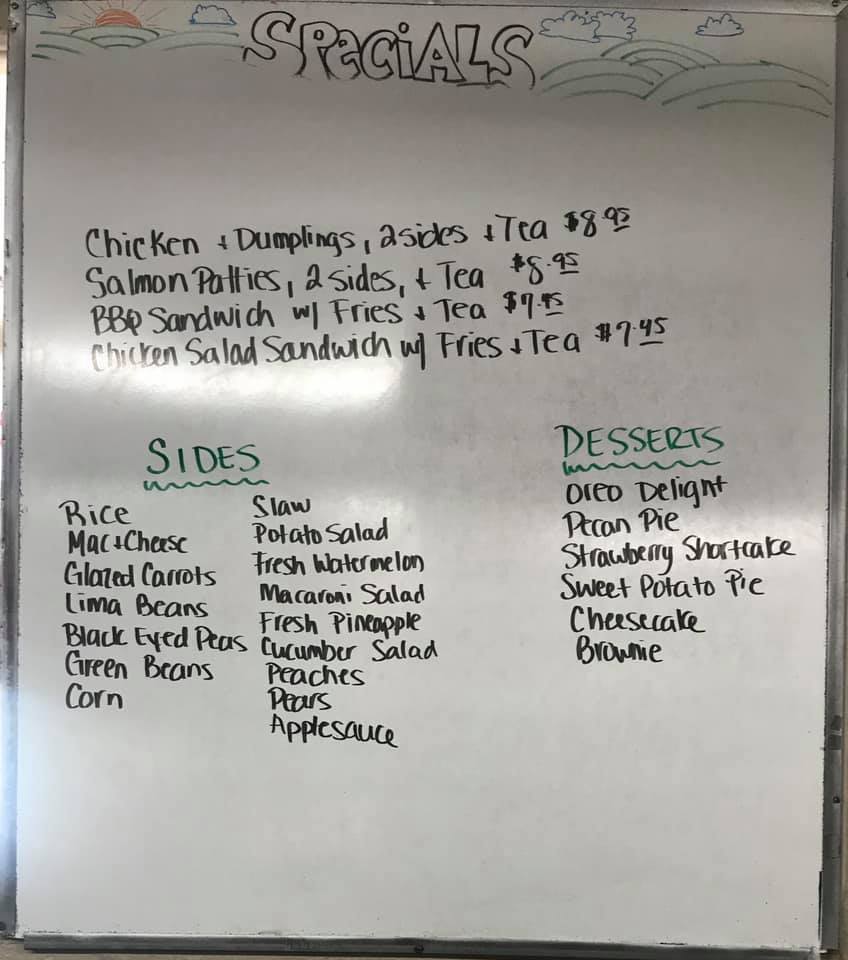 SPECiALS
Chicken + Dumplings, 2 sides + Tea $8.95
Salmon Patties, 2 sides, + Tea $8.95
BBQ Sandwich w/ Fries + Tea $7.45
Chicken Salad Sandwich w/ Fries + Tea $7.45
SIDES
Rice
Mac+Cheese
Glazed Carrots
Lima Beans
Black Eyed Peas
Green Beans
Corn
Slaw
Potato Salad
Fresh Watermelon
Macaroni Salad
Fresh Pineapple
Cucumber Salad
Peaches
Pears
Applesauce
DESSERTS
Oreo Delight
Pecan Pie
Strawberry Shortcake
Sweet Potato Pie
Cheesecake
Brownie